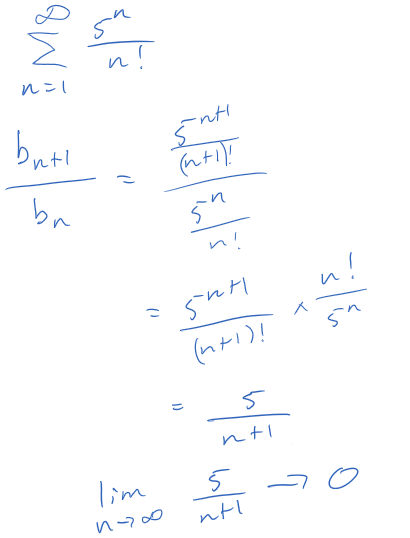 ∞
∑ 5^n / n!
n=1
b_{n+1} / b_n = (5^{n+1} / (n+1)!) / (5^n / n!)
= 5^{n+1} / (n+1)! × n! / 5^n
= 5 / n+1
lim n→∞ 5 / n+1 → 0